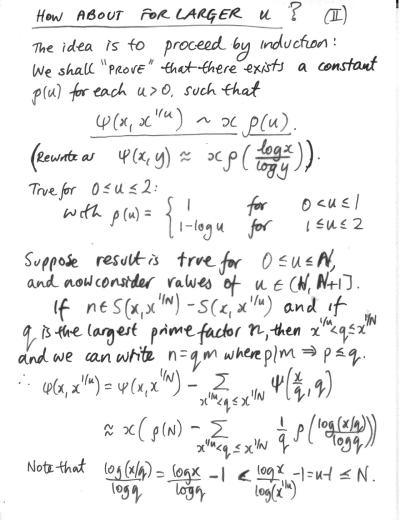 How ABOUT FOR LARGER u ? (II)
The idea is to proceed by induction:
We shall "PROVE" that there exists a constant
ρ(u) for each u>0, such that
ψ(x, x^{1/u}) ~ x ρ(u).
(Rewrite as ψ(x,y) ≈ xρ(log x / log y)).
True for 0≤u≤2:
with ρ(u) = { 1 for 0<u≤1
1-log u for 1≤u≤2
Suppose result is true for 0≤u≤N,
and now consider values of u ∈ (N, N+1].
If n∈S(x,x^{1/N}) - S(x,x^{1/u}) and if
q is the largest prime factor n, then x^{1/u}<q≤x^{1/N}
and we can write n=qm where p|m ⇒ p≤q.
∴ ψ(x,x^{1/u}) = ψ(x,x^{1/N}) - Σ_{x^{1/u}<q≤x^{1/N}} ψ(x/q, q)
≈ x(ρ(N) - Σ_{x^{1/u}<q≤x^{1/N}} 1/q ρ(log(x/q)/log q))
Note that log(x/q)/log q = log x/log q - 1 < log x/log(x^{1/u}) - 1 = u-1 ≤ N.